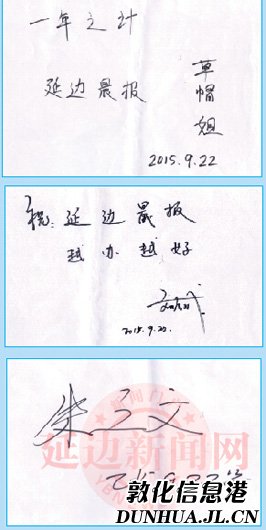 一年之计
延边晨报
草帽姐
2015.9.22
祝:延边晨报
越办越好
2015.9.22.
朱之文
延边新闻网
敦化信息港
DUNHUA.JL.CN